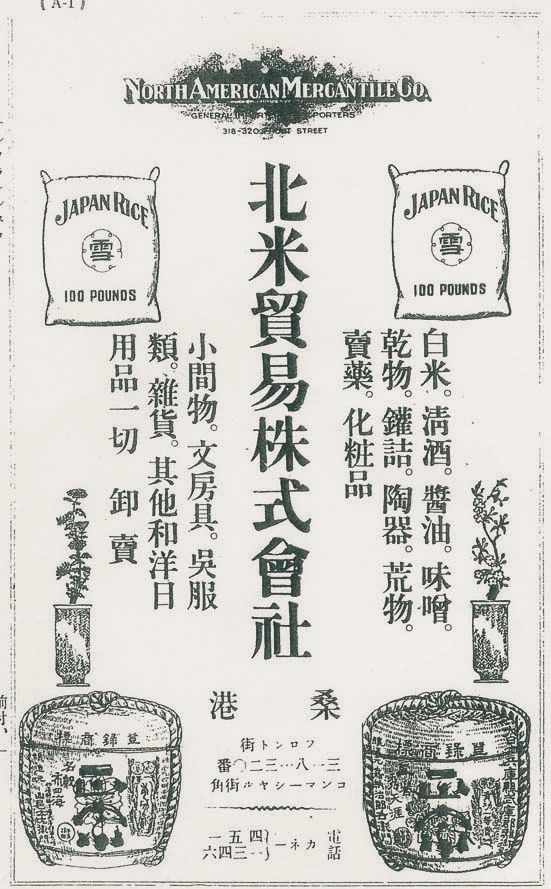 (A-1)
NORTH AMERICAN MERCANTILE CO.
GENERAL IMPORTERS EXPORTERS
318-320 FRONT STREET
JAPAN RICE
雪
100 POUNDS
JAPAN RICE
雪
100 POUNDS
白米。清酒。醬油。味噌。
乾物。鑵詰。陶器。荒物。
賣藥。化粧品
北米貿易株式會社
小間物。文房具。吳服
類。雜貨。其他和洋日
用品一切 卸賣
桑港
フロント街
三一八…三二〇番
コンマーシヤル街角
電話 カネー
登錄商標
登錄商標